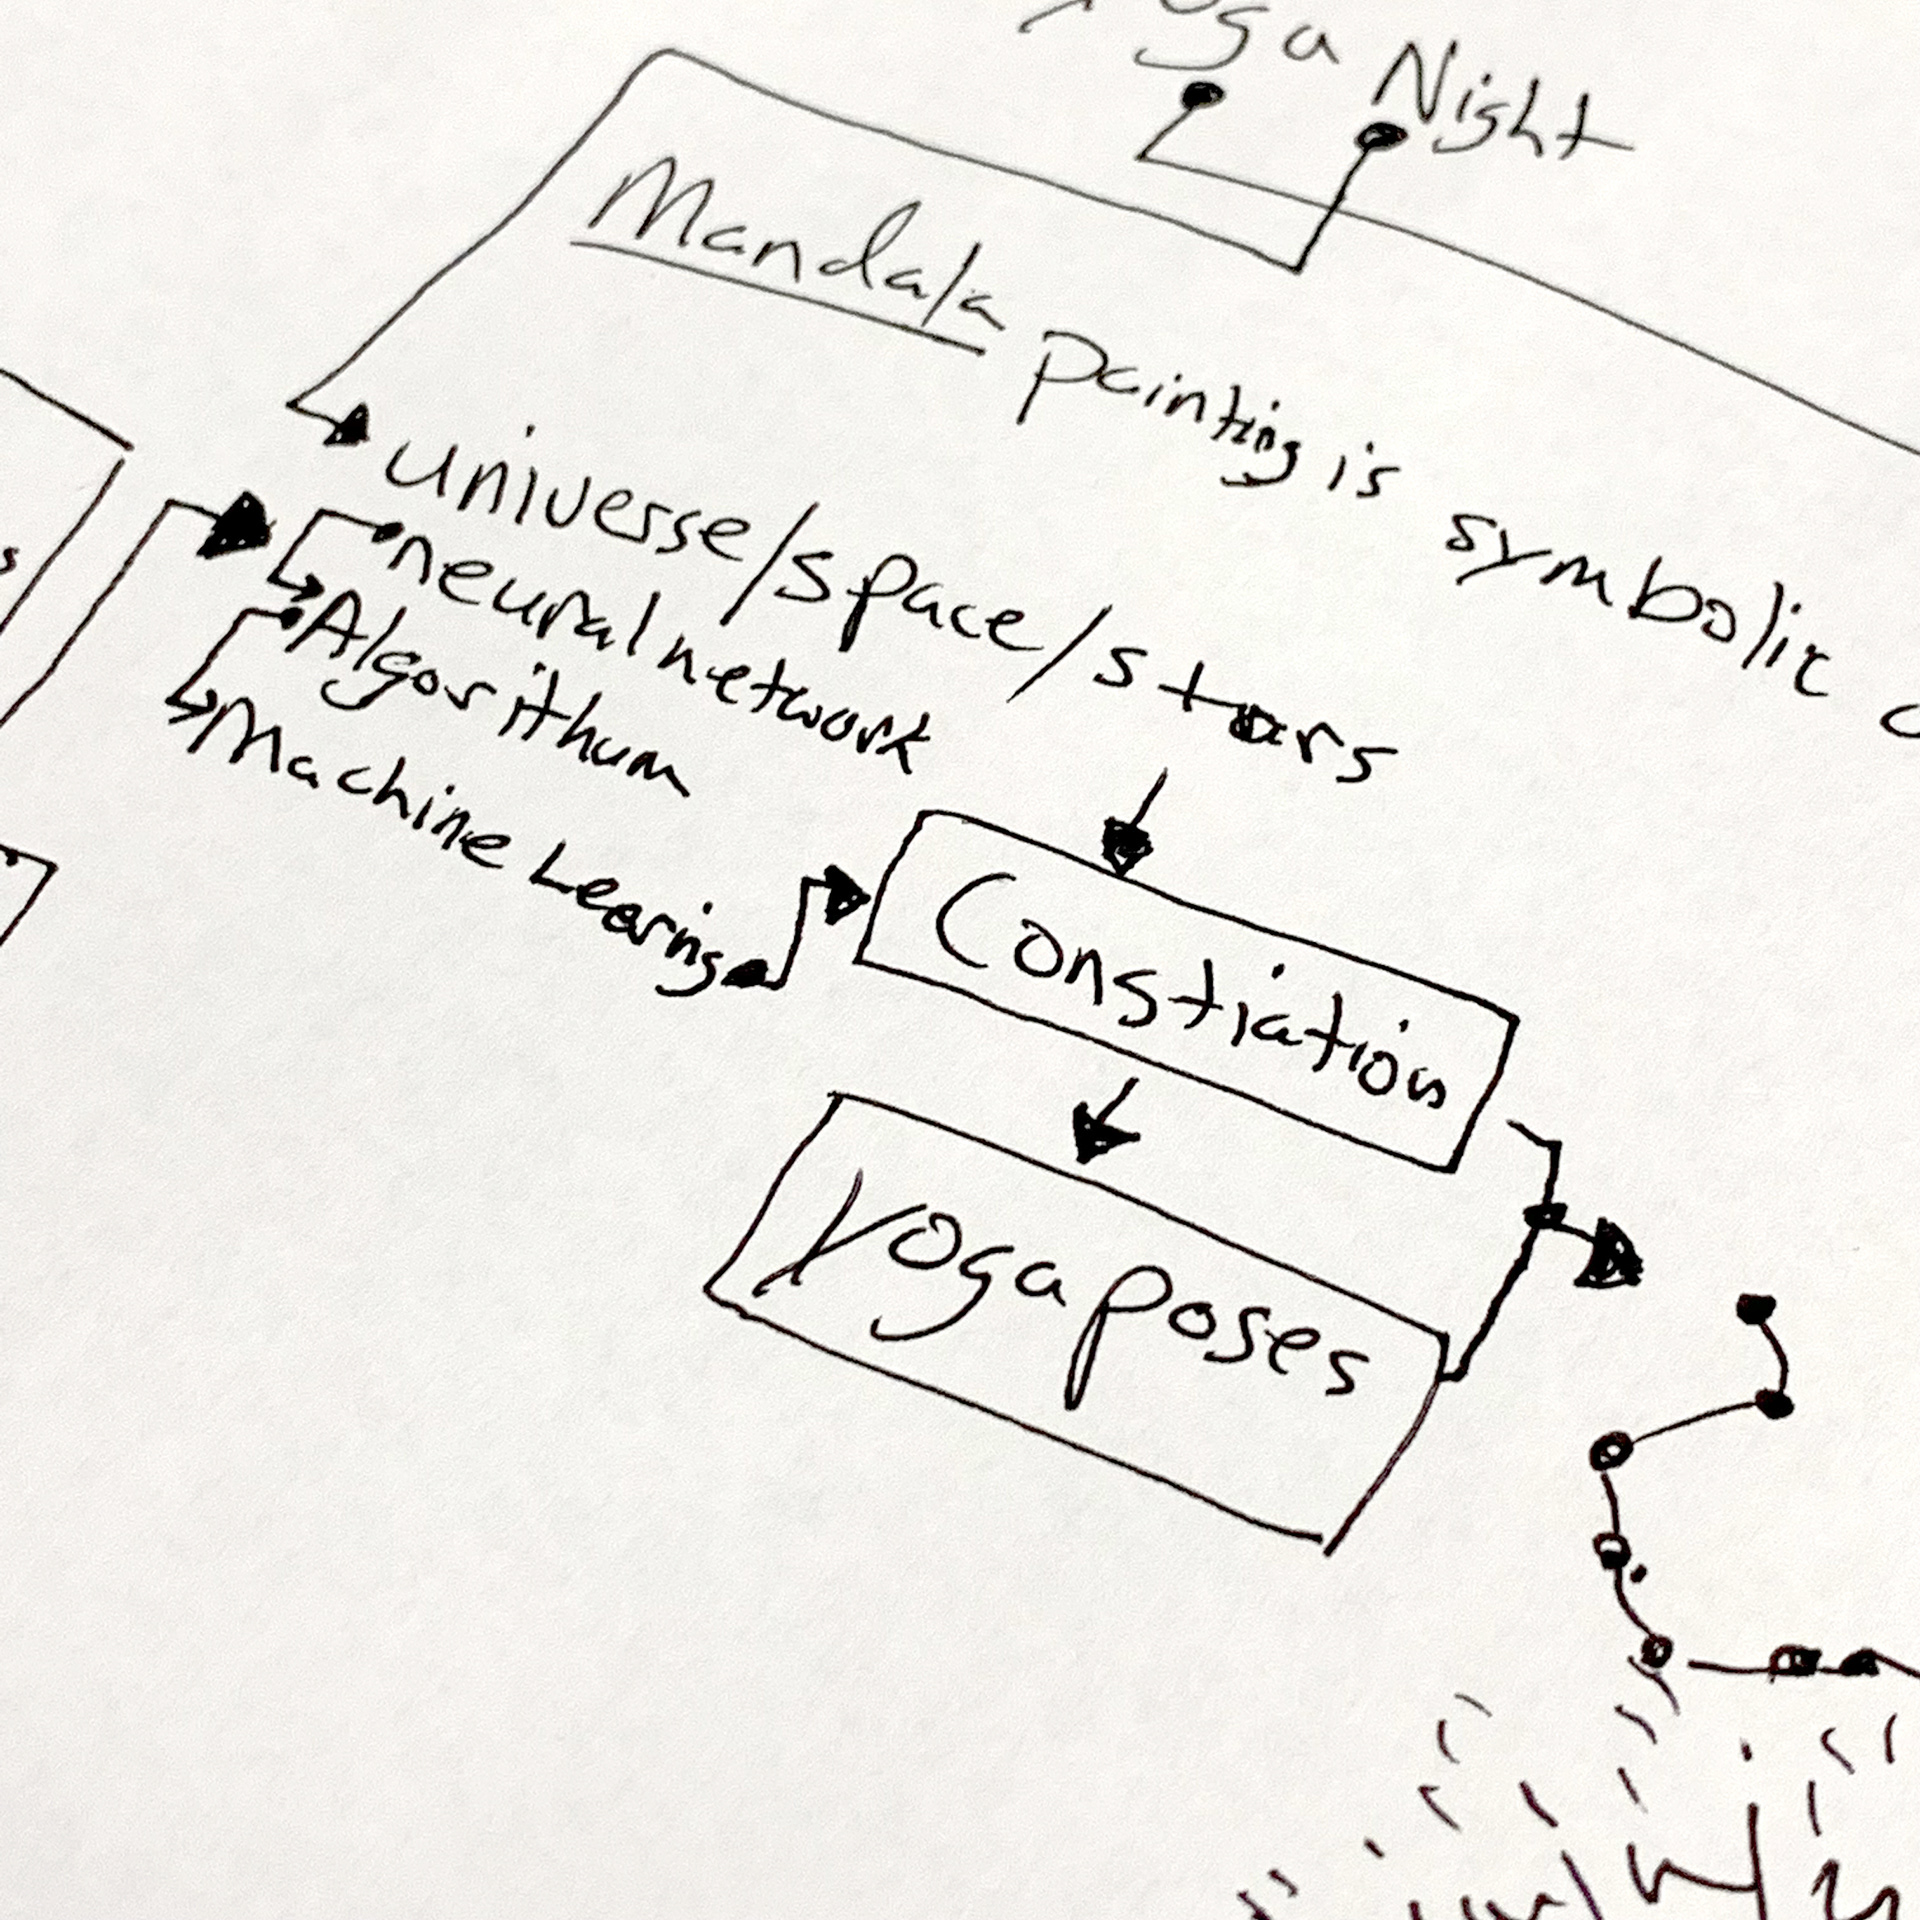 oga Night
Mandala painting is symbolic
universe/space/stars
neural network
Algorithum
Machine Learing
Constiation
Yoga poses